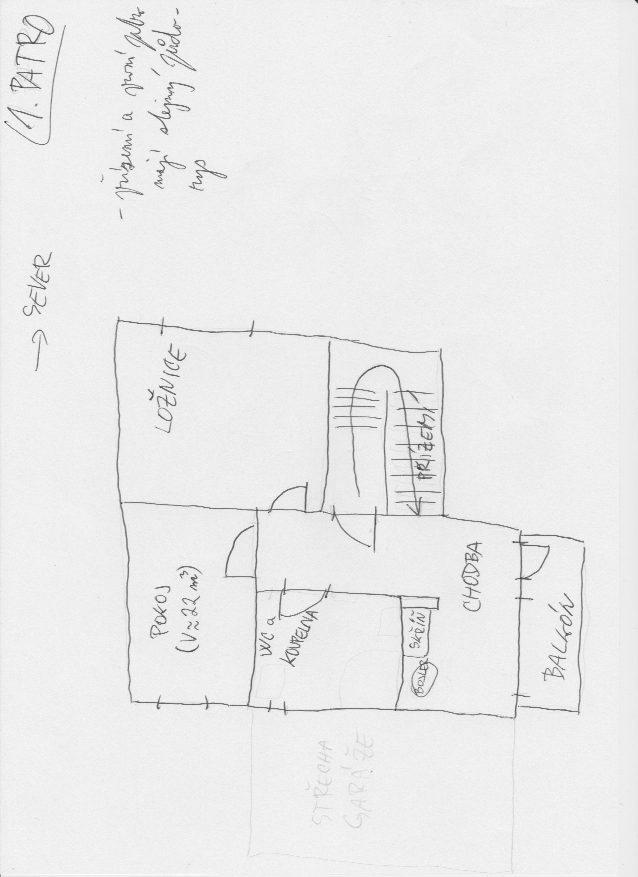 1. PATRO
- přízemí a první patro
mají stejný půdo-
rys
→ SEVER
LOŽNICE
PŘÍZEMÍ
POKOJ
(V≈22 m³)
WC a
KOUPELNA
SKŘÍŇ
BOJLER
CHODBA
BALKÓN
STŘECHA
GARÁŽE